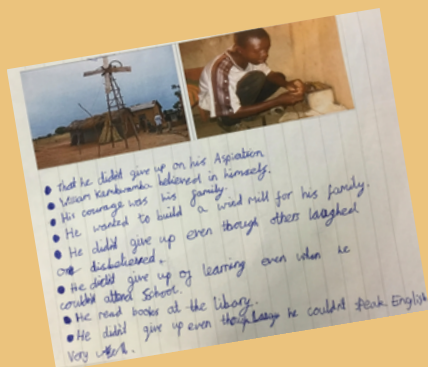 • that he didn't give up on his Aspiration
• William Kamkwamba believed in himself.
• His courage was his family.
• He wanted to build a wind mill for his family.
• He didn't give up even though others laughed
or disbelieved.
• He didn't give up of learning even when he
couldn't attend school.
• He read books at the library.
• He didn't give up even though he couldn't speak English
Very well.